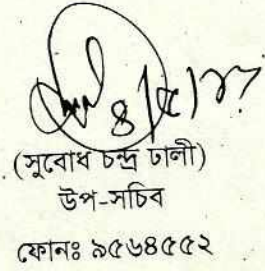 ৪/৫/১৭
(সুবোধ চন্দ্র ঢালী)
উপ-সচিব
ফোনঃ ৯৫৬৪৫৫২